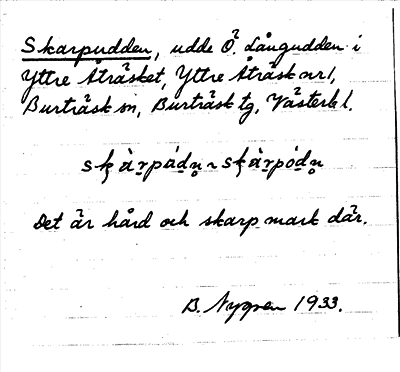 Skarpudden, udde Ö. Långudden i
Yttre Åträsket, Yttre Åträsk nr 1,
Burträsk sn, Burträsk tg, Västerb l.
skàrpádn ~ skàrpódn
Det är hård och skarp mark där.
B. Nygren 1933.